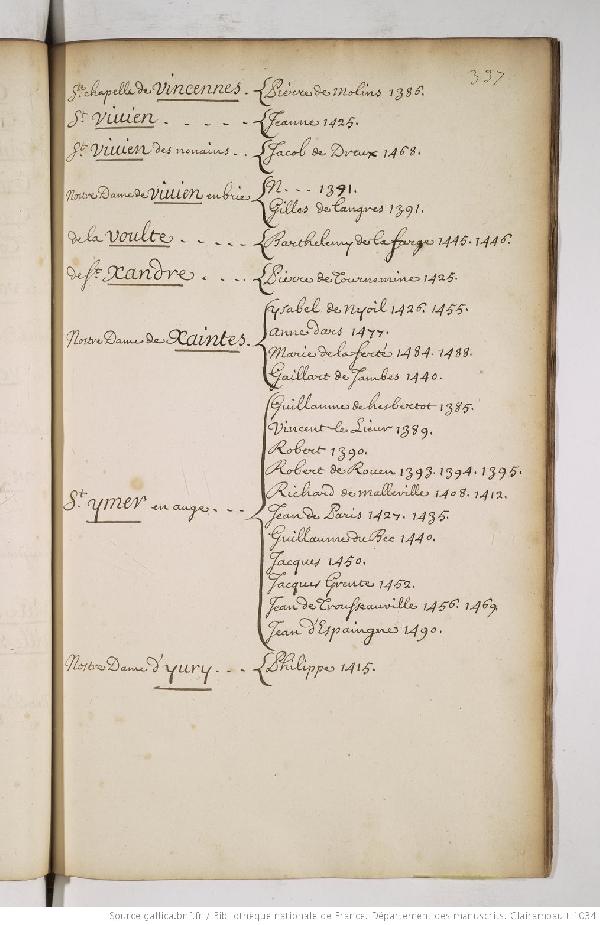 337
Ste chapelle de Vincennes. { Pierre de Molins 1386.
St Viuien . . . . . { Jeanne 1425.
St Viuien des nonains . . { Jacob de Dreux 1468.
Nostre Dame de Viuien en brie { N. . . . 1391.
Gilles de Langres 1391.
de la Voulte . . . . . { Barthelemy de la farge 1445. 1446.
de Ste Xandre . . . . { Pierre de Tournemine 1425.
Nostre Dame de Xaintes. { ysabel de Nyoil 1426. 1455.
anne dars 1477.
Marie de la ferté 1484. 1488.
Gaillart de Jambes 1440.
St ymer en auge. . . { Guillaume de hesbertot 1385.
Vincent le Lieur 1389.
Robert 1390.
Robert de Rouen 1393. 1394. 1395.
Richard de Malleville 1408. 1412.
Jean de Paris 1427. 1435.
Guillaume du Bec 1440.
Jacques 1450.
Jacques Grente 1452.
Jean de Trousseauville 1456. 1469
Jean d'Espaingne 1490.
Nostre Dame d'yury. . . { Philippe 1415.
Source gallica.bnf.fr / Bibliothèque nationale de France. Département des manuscrits. Clairambault 1034